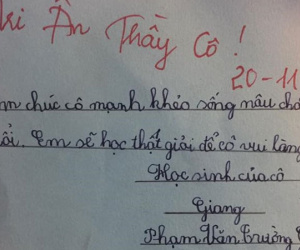 Ân Thầy Cô !
20-11
chúc cô mạnh khẻo sống nâu
Em sẽ học thật giải để cô vui
Học sinh của cô
Giang
Phạm Văn Trường